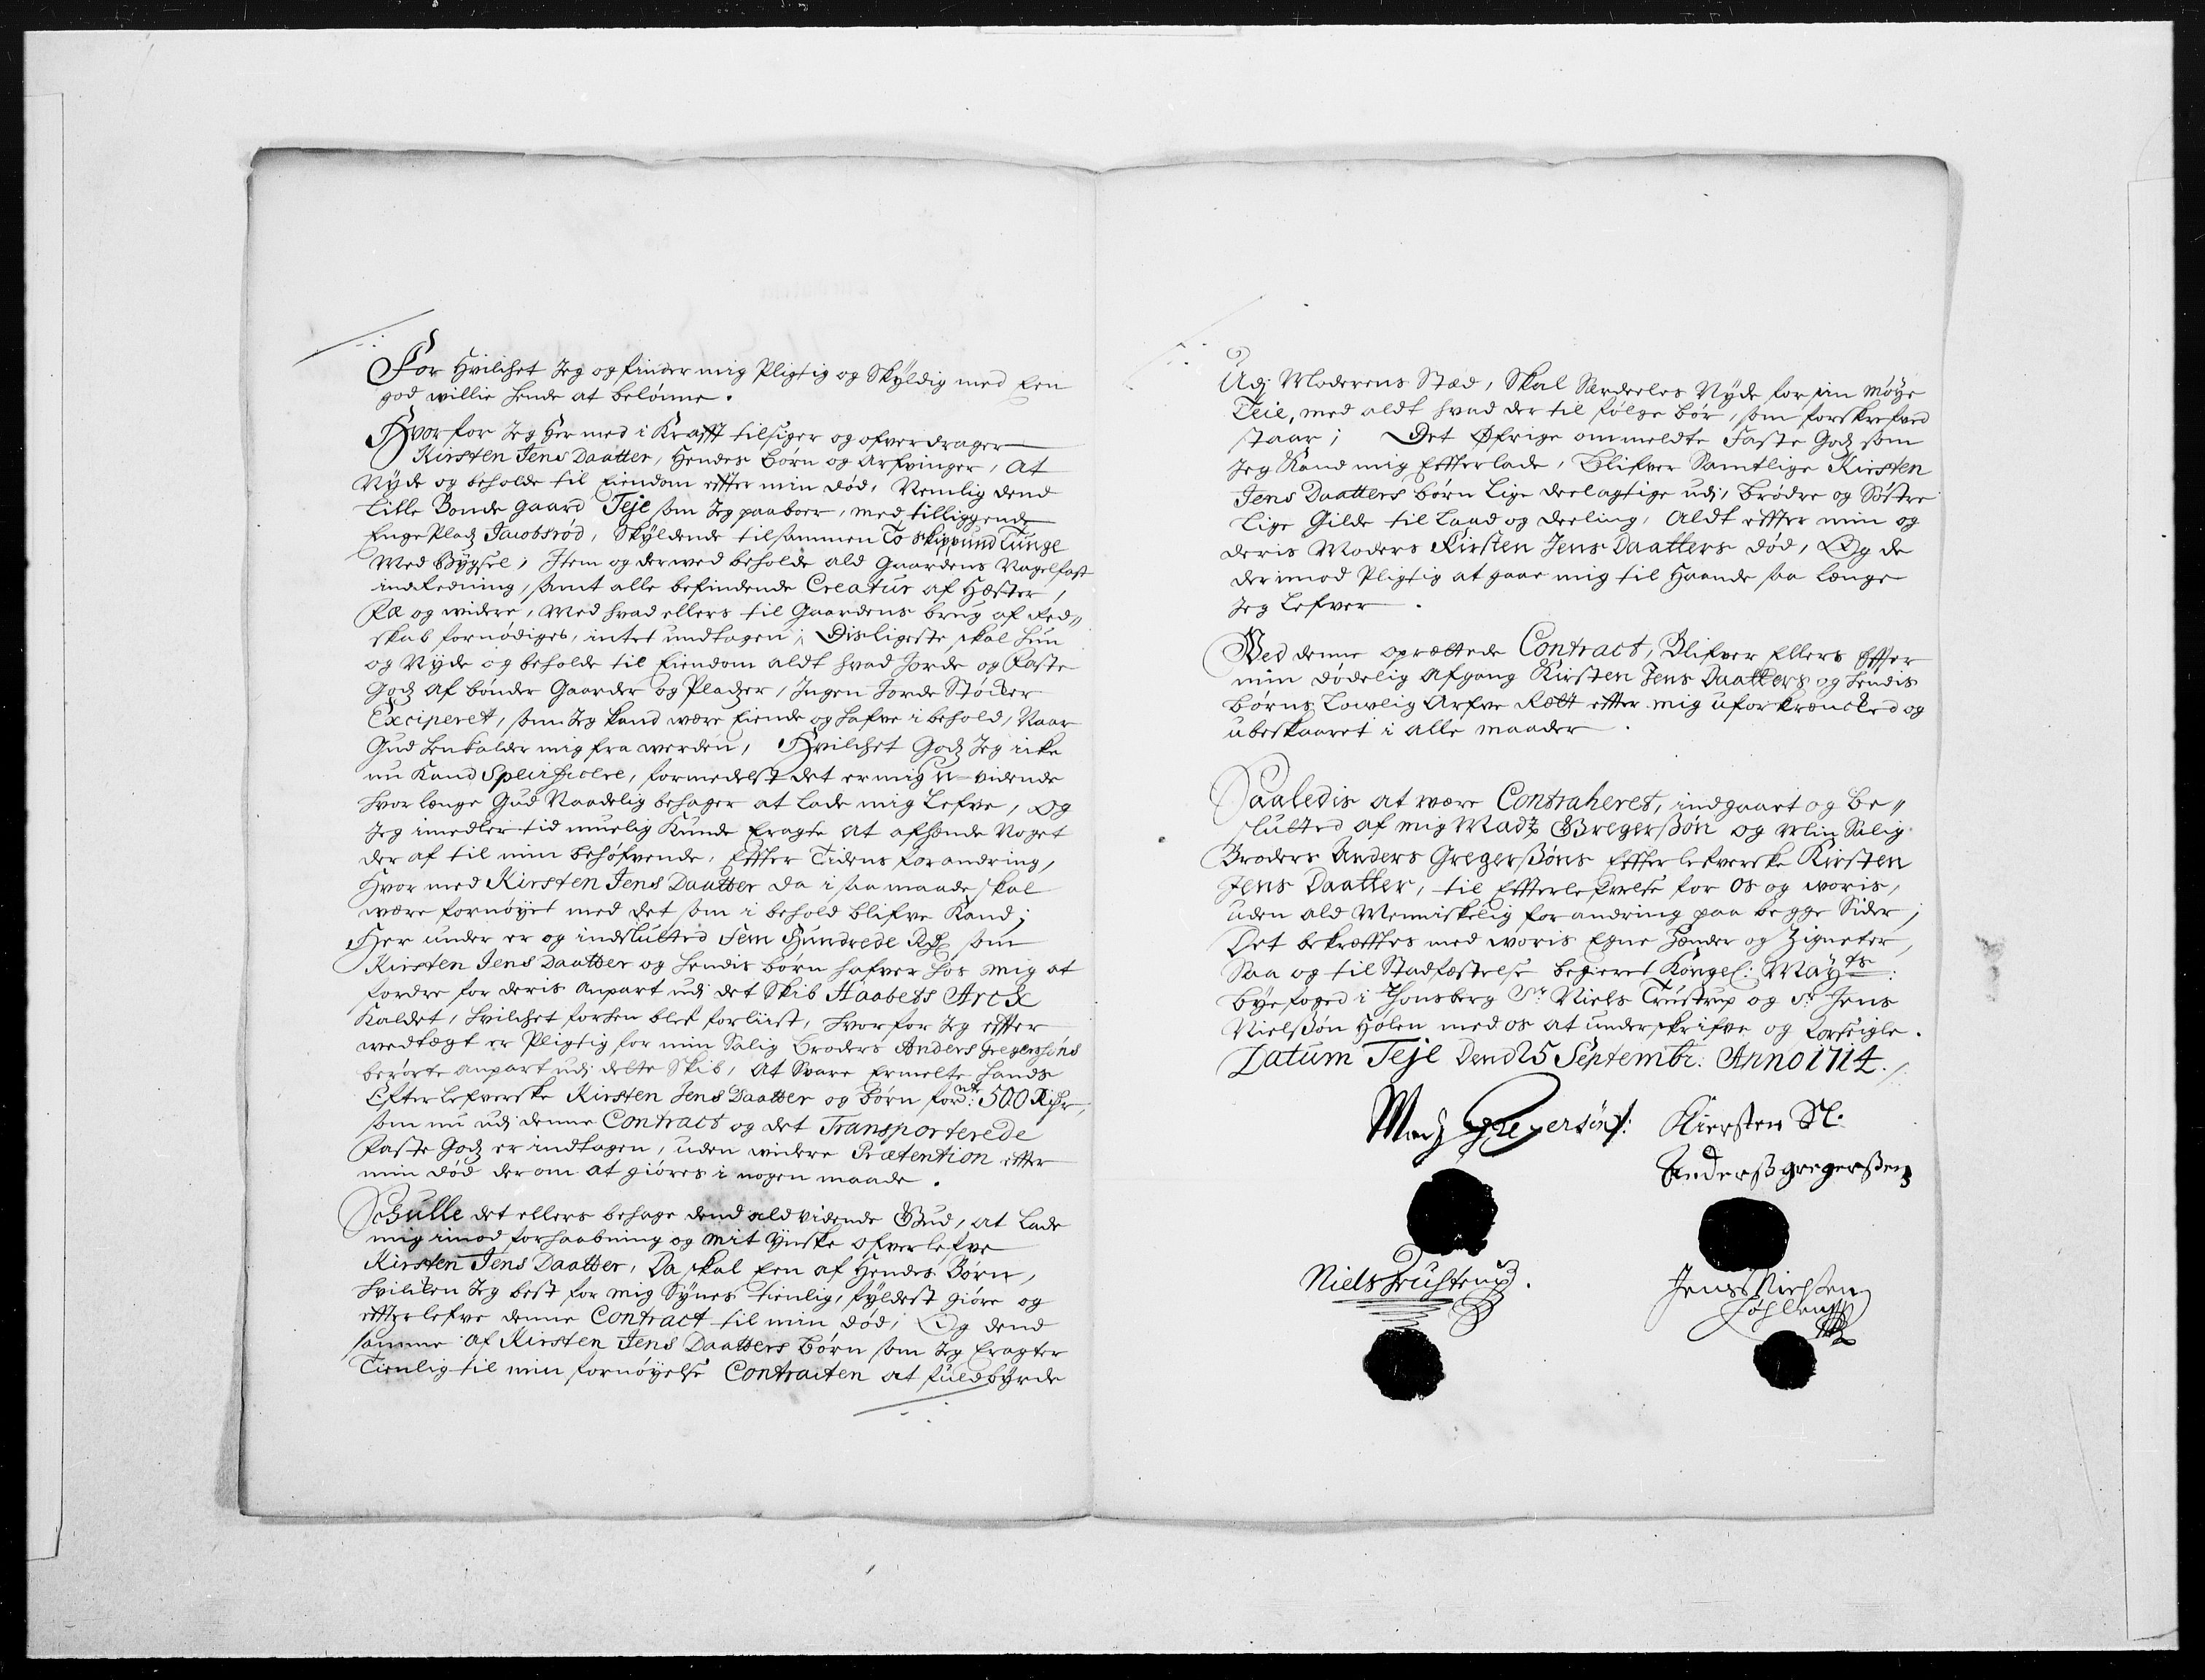 For Hvilchet Jeg og finder mig Pligtig og Skyldig med Een
god willie hende at belønne.
Hvor for Jeg Her med i Krafft tilsiger og ofverdrager
Kirsten Jens Daatter, Hendes Børn og Arfvinger, At
Nyde og beholde til Eiendom effter min død, Nemlig dend
Lille Bonde gaard Teje som Jeg paaboer, med tilliggende
Enge Pladz Jacobsrød, Skyldende tilsammen To Skippund Tunge
Med Bygsel; Item og derved beholde ald Gaardens Nagelfast
indredning, samt alle befindende Creatur af Hæster,
Fæ og widere, Med hvad ellers til Gaardens brug af Red„
skab fornødiges, intet undtagen; Disligeste skal hun
og Nyde og beholde til Eiendom aldt hvad Jorde og Faste
Godz af bønder Gaarder og Pladzer, Ingen Jorde Støcker
Exciperet, som Jeg kand være Eiende og hafve i behold, Naar
Gud henkalder mig fra werden, Hvilchet Godz Jeg icke
nu Kand Specificere, formedelst det er mig u-vidende
hvor længe Gud Naadelig behager at lade mig Lefve, og
Jeg imedlertid muelig Kunde Eragte at afhænde Noget
der af til min behøfvende, Effter Tidens forandring,
Hvor med Kirsten Jens Daatter da i saa maade skal
være fornøyet med det som i behold blifve Kand;
Her under er og indsluttet Fem Hundrede Rdr som
Kirsten Jens Daatter og hendis børn hafver hos mig at
fordre for deris Anpart udj det Skib Haabets Arck
Kaldet, hvilchet forhen blef forliist, hvor for Jeg effter
wedtægt er Pligtig for min Salig Broders Anders Gregersøns
berørte anpart udj dette Skib, At Svare Ermelte hands
Efterlefverske Kirsten Jens Daatter og Børn fornd: 500 Rdr,
som nu udj denne Contract og det Transporterede
Faste Godz er indtagen, uden widere Prætention effter
min død der om at giøres i nogen maade.
Schulle det ellers behage dend aldvidende Gud, at Lade
mig imod forhaabning og mit ynske ofverlefve
Kirsten Jens Daatter, Da skal Een af Hendes Børn,
hvilcken Jeg best for mig Synes tienlig, fyldest giøre og
effterlefve denne Contract til min død; Og dend
samme af Kirsten Jens Daatters Børn som Jeg Eragter
Tienlig til min fornøyelse Contracten at fuldbyrde
Udj Moderens Stæd, Skal Særdeeles Nyde for sin møye
Teie, med aldt hvad der til følge bør, som forskrefved
staar; Det Øfrige ommeldte Faste Godz som
Jeg Kand mig Effterlade, Blifver Samtlige Kirsten
Jens Daatters børn Lige deelagtige udj, Brødre og Søstre
Lige Gilde til Laad og deeling, Aldt effter min og
deris Moders Kirsten Jens Daatters død, Og de
derimod Pligtig at gaae mig til Haande saa længe
Jeg Lefver.
Ved denne oprættede Contract, Blifver Ellers Effter
min dødelig Afgang Kirsten Jens Daatters og hendis
Børns Lovlig Arfve Rætt effter mig uforkrencked og
ubeskaaret i alle maader.
Saaledis at være Contraheret, indgaaet og be„
sluttet af mig Madtz Gregersøn og Min Salig
Broders Anders Gregersøns Effterlefverske Kirsten
Jens Daatter, til Effterlefvelse for os og woris,
uden ald Menniskelig forandring paa begge Sider;
Det bekræfftes med woris Egne Hænder og Zigneter,
Saa og til Stadfæstelse begieret Kongel: Mayts:
Byefoged i Thonsberg Sr Niels Trustrup og Sr Jens
Nielssøn Holen med os at underskrifve og Forseigle.
Datum Teje Dend 25 Septembr: Anno 1714.
Madz Gregersøn: Kiersten Sl:
Anderss gregerssens
Niels Trustrup. Jens Nielssen
Høhlen